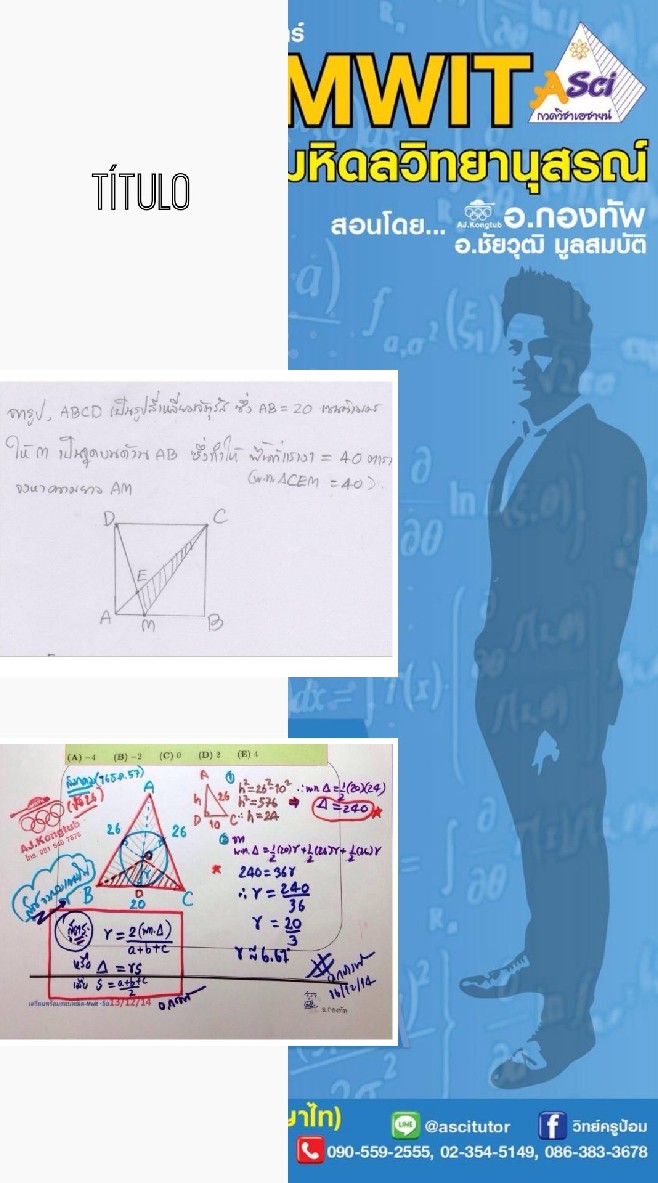 TÍTULO
MWIT
ASci
กวดวิชาเอซายน์
มหิดลวิทยานุสรณ์
สอนโดย... AJ.Kongtub อ.กองทัพ
อ.ชัยวุฒิ มูลสมบัติ
จากรูป, ABCD เป็นรูปสี่เหลี่ยมจัตุรัส ซึ่ง AB = 20
ให้ M เป็นจุดบนด้าน AB ซึ่งทำให้ พื้นที่แรเงา = 40
(พ.ท. ΔCEM = 40)
จงหาความยาว AM
D C
E
A M B
(A) −4 (B) −2 (C) 0 (D) 2 (E) 4
AJ.Kongtub
A
26 26
B D C
20
A
h 26
D 10 C
① h²=26²-10²
h²=576
∴ h=24
∴ พ.ท. Δ = ½(20)(24)
Δ = 240
② จาก
พ.ท. Δ = ½(20)r + ½(26)r + ½(26)r
240 = 36r
∴ r = 240/36
r = 20/3
r ≈ 6.67
สูตร r = 2(พ.ท.Δ)/a+b+c
หรือ Δ = rs
เมื่อ s = a+b+c/2
13/12/14
อ.กองทัพ
@ascitutor วิทย์ครูป้อม
090-559-2555, 02-354-5149, 086-383-3678